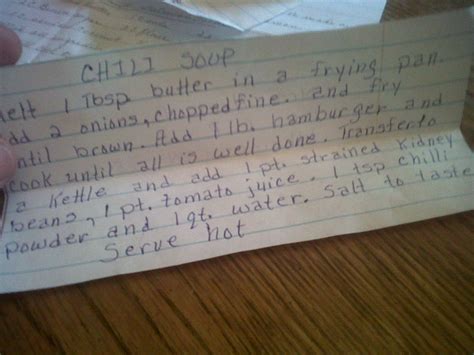 CHILI SOUP
elt 1 Tbsp butter in a frying pan.
ad 2 onions, chopped fine. and fry
ntil brown. Add 1 lb. hamburger and
cook until all is well done. Transfer to
a Kettle and add 1 pt. strained Kidney
beans, 1 pt. tomato juice. 1 tsp chilli
powder and 1 qt. water. Salt to taste
Serve hot